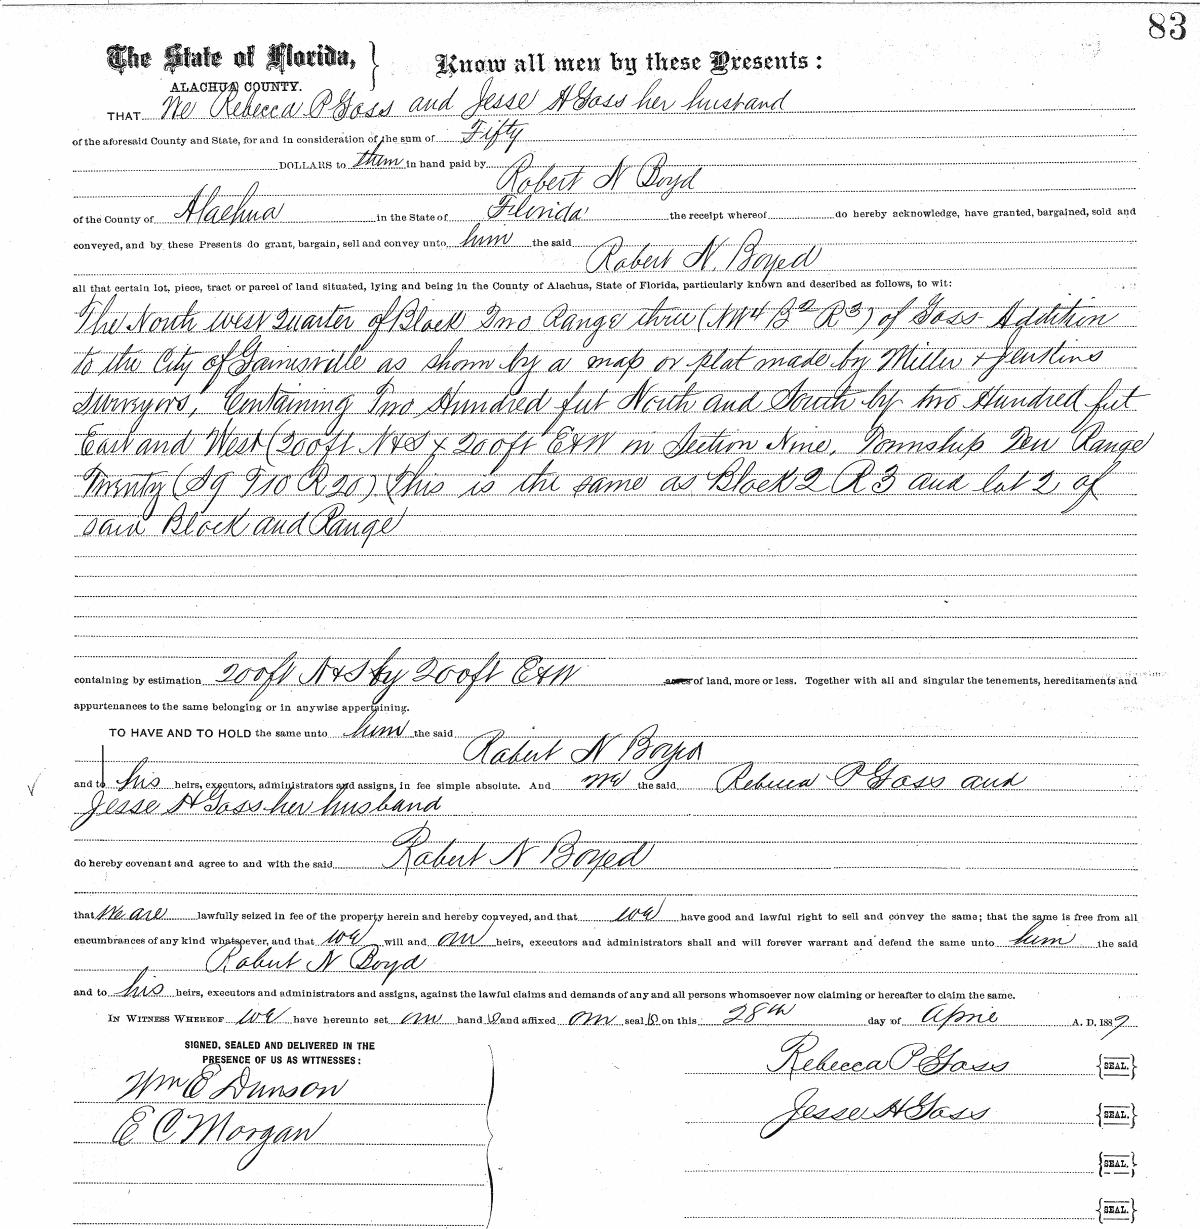 83
The State of Florida,
ALACHUA COUNTY.
Know all men by these Presents:
THAT We Rebecca P Goss and Jesse H Goss her husband
of the aforesaid County and State, for and in consideration of the sum of Fifty
DOLLARS to them in hand paid by
Robert N Boyd
of the County of Alachua in the State of Florida the receipt whereof do hereby acknowledge, have granted, bargained, sold and
conveyed, and by these Presents do grant, bargain, sell and convey unto him the said
Robert N. Boyed
all that certain lot, piece, tract or parcel of land situated, lying and being in the County of Alachua, State of Florida, particularly known and described as follows, to wit:
The North west Quarter of Block Two Range three (NW4 B2 R3) of Goss Addition
to the City of Gainesville as shown by a map or plat made by Miller & Jenkins
Surveyors, Containing Two Hundred feet North and South by two Hundred feet
East and West (200ft N&S x 200ft E&W in Section Nine, Township Ten Range
Twenty (S9 T10 R20) (This is the same as Block 2 R3 and lot 2 of
said Block and Range
containing by estimation 200ft N&S by 200ft E&W acres of land, more or less. Together with all and singular the tenements, hereditaments and
appurtenances to the same belonging or in anywise appertaining.
TO HAVE AND TO HOLD the same unto him the said
Robert N Boyed
and to his heirs, executors, administrators and assigns, in fee simple absolute. And we the said Rebecca P Goss and
Jesse H Goss her husband
do hereby covenant and agree to and with the said Robert N Boyed
that We are lawfully seized in fee of the property herein and hereby conveyed, and that we have good and lawful right to sell and convey the same; that the same is free from all
encumbrances of any kind whatsoever, and that we will and our heirs, executors and administrators shall and will forever warrant and defend the same unto him the said
Robert N Boyd
and to his heirs, executors and administrators and assigns, against the lawful claims and demands of any and all persons whomsoever now claiming or hereafter to claim the same.
IN WITNESS WHEREOF we have hereunto set our hand s and affixed our seal s on this 28th day of April A. D. 1887
SIGNED, SEALED AND DELIVERED IN THE
PRESENCE OF US AS WITNESSES:
Wm E Dunson
E C Morgan
Rebecca P Goss {SEAL.}
Jesse H Goss {SEAL.}
{SEAL.}
{SEAL.}